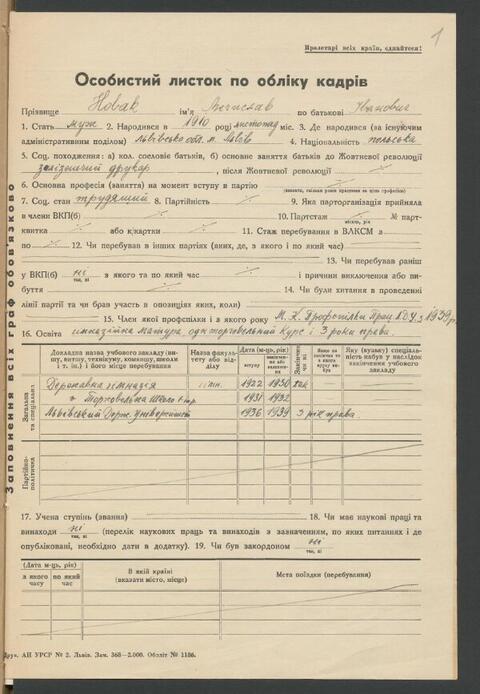 1
Пролетарі всіх країн, єднайтеся!
Особистий листок по обліку кадрів
Прізвище Новак ім'я по батькові Іванович
1. Стать муж 2. Народився в 1910 році листопад міс. 3. Де народився (за існуючим
адміністративним поділом) Львівська обл. м. Львів 4. Національність польська
5. Соц. походження: а) кол. сословіє батьків, б) основне заняття батьків до Жовтневої революції
залізничий друкар, після Жовтневої революції
6. Основна професія (заняття) на момент вступу в партію
7. Соц. стан трудящий 8. Партійність 9. Яка парторганізація прийняла
в члени ВКП(б) 10. Партстаж № парт-
місяць, рік
квитка або к/картки 11. Стаж перебування в ВЛКСМ з
по 12. Чи перебував в інших партіях (яких, де, з якого і по який час)
13. Чи перебував раніш
у ВКП(б) ні з якого та по який час і причини виключення або ви-
так, ні
буття 14. Чи були хитання в проведенні
лінії партії та чи брав участь в опозиціях яких, коли)
15. Член якої профспілки і з якого року М. К. Профспілки Прац. з 1939 р.
16. Освіта матура, один торговельний курс і 3 роки права.
Загальна та спеціальна
Докладна назва учбового закладу (вищу, вптшу, технікуму, комвишу, школи і т. ін.) і його місце перебування
Назва факультету або відділу
Дата (м-ць, рік)
вступу
Закінчив чи ні
Яку (вузьку) спеціальність набув у наслідок закінчення учбового закладу
Державна гімназія 1922 1930 так
" Торковельна Школа 1931 1932
Львівський Держ. Университет 1936 1939 3 рік права
Партійно-політична
17. Учена ступінь (звання) 18. Чи має наукові праці та
винаходи ні (перелік наукових праць та винаходів з зазначенням, по яких питаннях і де
так, ні
опубліковані, необхідно дати в додатку). 19. Чи був закордоном ні
так, ні
(Дата м-ць, рік)
з якого часу
по який час
В якій країні (вказати місто, місце)
Мета поїздки (перебування)
Друк. АН УРСР № 2. Львів. Зам. 368—2.000. Обліт № 1186.
Заповнення всіх граф обов'язково